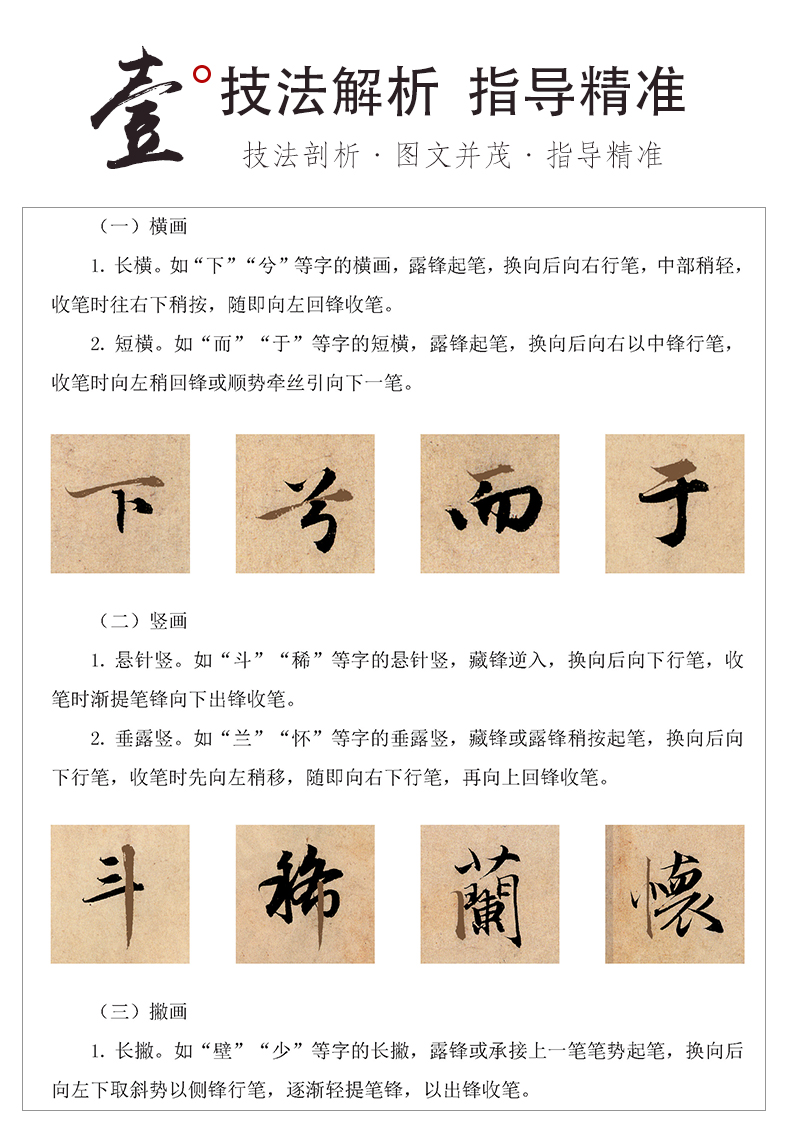 壹
技法解析 指导精准
技法剖析·图文并茂·指导精准
（一）横画
1. 长横。如“下”“兮”等字的横画，露锋起笔，换向后向右行笔，中部稍轻，
收笔时往右下稍按，随即向左回锋收笔。
2. 短横。如“而”“于”等字的短横，露锋起笔，换向后向右以中锋行笔，
收笔时向左稍回锋或顺势牵丝引向下一笔。
下 兮 而 于
（二）竖画
1. 悬针竖。如“斗”“稀”等字的悬针竖，藏锋逆入，换向后向下行笔，收
笔时渐提笔锋向下出锋收笔。
2. 垂露竖。如“兰”“怀”等字的垂露竖，藏锋或露锋稍按起笔，换向后向
下行笔，收笔时先向左稍移，随即向右下行笔，再向上回锋收笔。
斗 稀 蘭 懷
（三）撇画
1. 长撇。如“壁”“少”等字的长撇，露锋或承接上一笔笔势起笔，换向后
向左下取斜势以侧锋行笔，逐渐轻提笔锋，以出锋收笔。